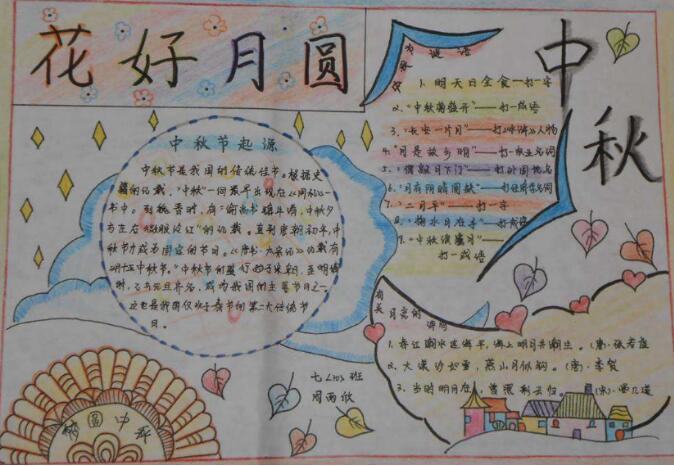 花好月圆
中秋
中秋节起源
中秋节是我国的传统佳节。根据史
籍的记载，“中秋”一词最早出现在《周礼》一
书中。到魏晋时，有“谕尚书镇牛渚，中秋夕
与左右微服泛江”的记载。直到唐朝初年，
中秋节才成为固定的节日。《唐书·太宗记》记载有
“八月十五中秋节”。中秋节的盛行始于宋朝，至明清
时，已与元旦齐名，成为我国的主要节日之一
这也是我国仅次于春节的第二大传统节
日。
谜语
1、明天日全食—打一字
2、“中秋菊盛开”——打一成语
3、“长安一片月”——打《水浒》人物
4、“月是故乡明”——打一
5、“偶数月下门”——打外国地名
6、“月有阴晴圆缺”——打经济学名词
7、“二月平”——打一字
8、“掬水月在手”——打成语
9、“中秋
打一成语
有关月亮的
诗句
1、春江潮水连海平，海上明月共潮生。（唐）张若虚
2、大漠沙如雪，燕山月似钩。（唐）李贺
3、当时明月在，曾照彩云归。（宋）晏几道
班
中秋